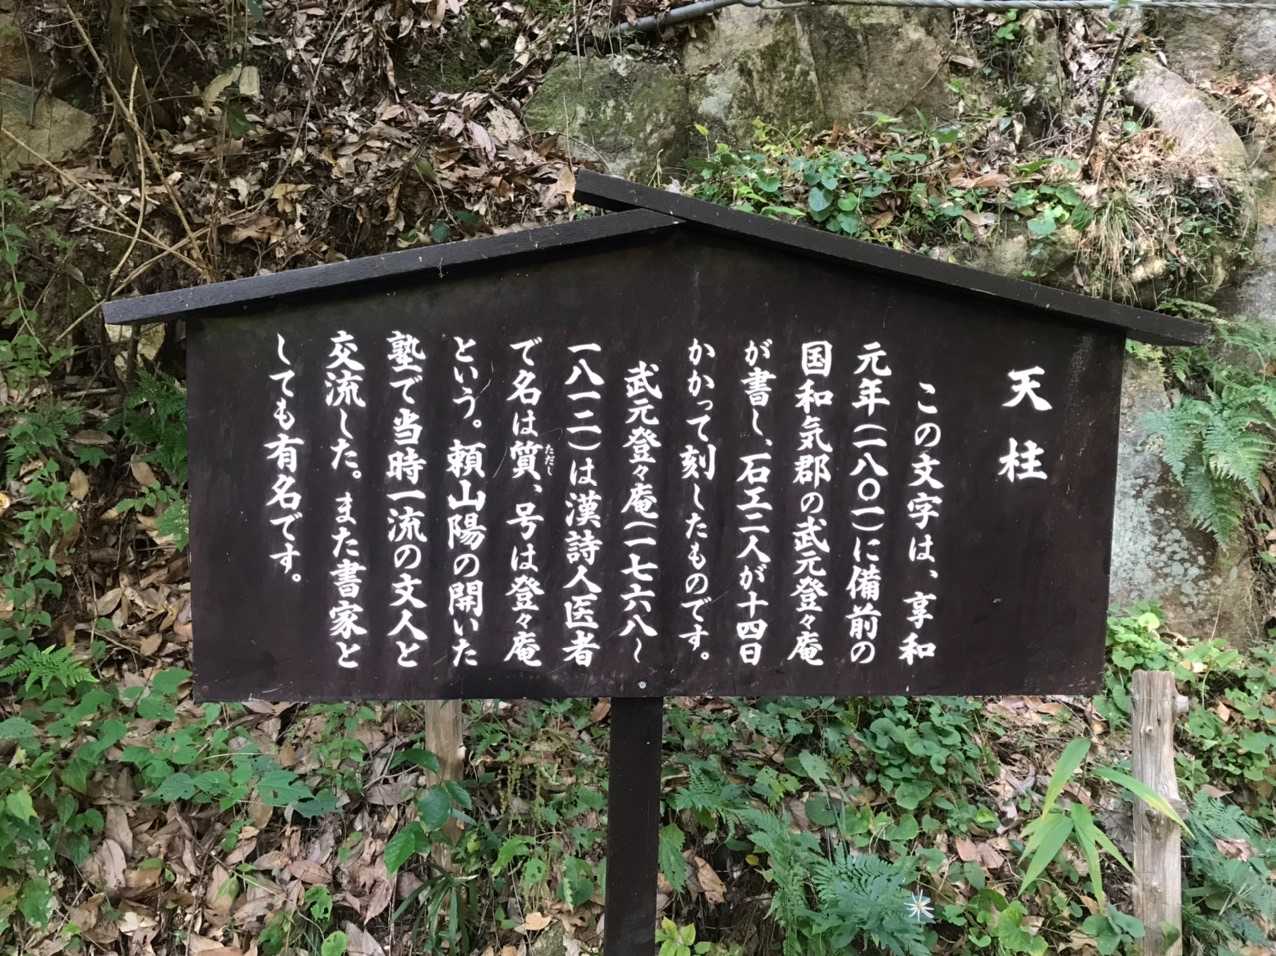 天柱
この文字は、享和
元年(一八〇一)に備前の
国和気郡の武元登々庵
が書し、石工二人が十四日
かかって刻したものです。
武元登々庵(一七六八~
一八一二)は漢詩人医者
で名は質、号は登々庵
ただし
という。頼山陽の開いた
塾で当時一流の文人と
交流した。また書家と
しても有名です。